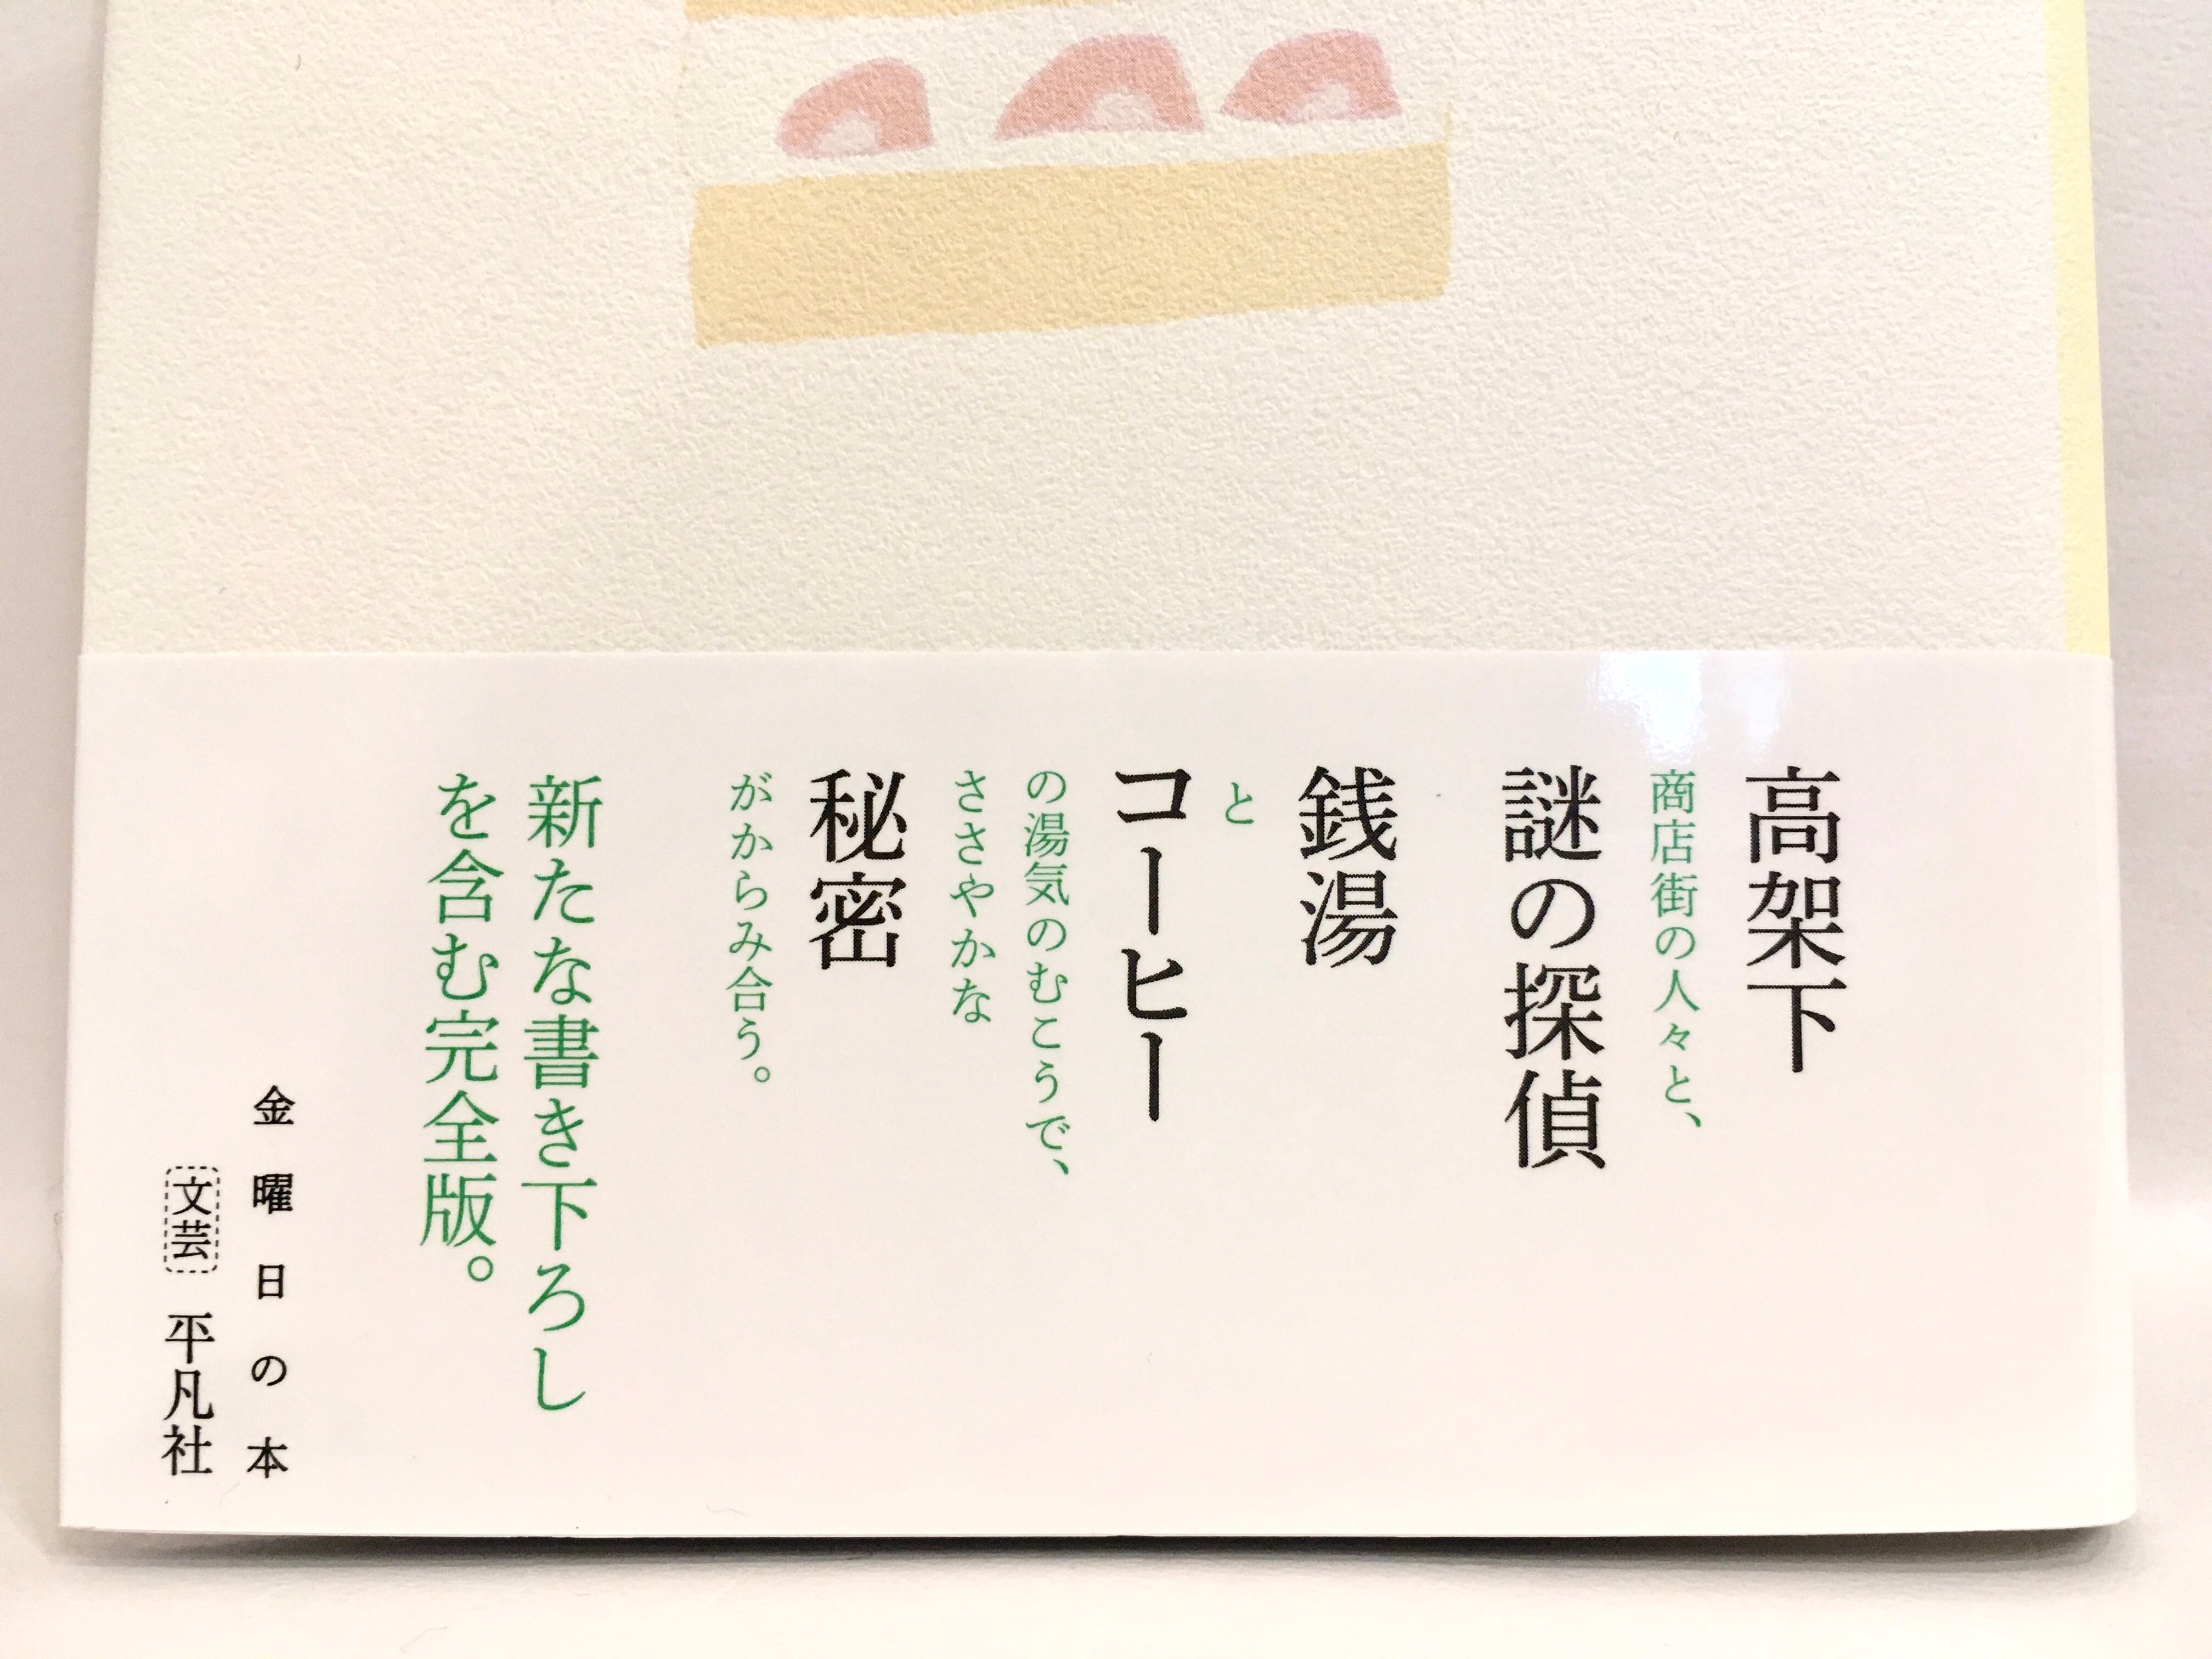 高架下
商店街の人々と、
謎の探偵
銭湯
と
コーヒー
の湯気のむこうで、
ささやかな
秘密
がからみ合う。
新たな書き下ろし
を含む完全版。
金曜日の本
文芸 平凡社